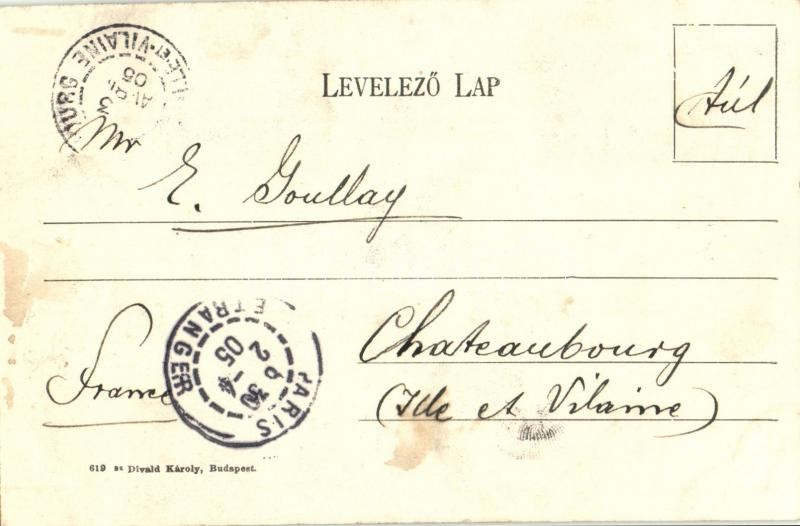 LEVELEZŐ LAP
Túl
ILLE-ET-VILAINE
05
3
Mr
E. Goullay
Chateaubourg
(Ille et Vilaine)
France
PARIS
ETRANGER
6 30
2
05
619 sz Divald Károly, Budapest.